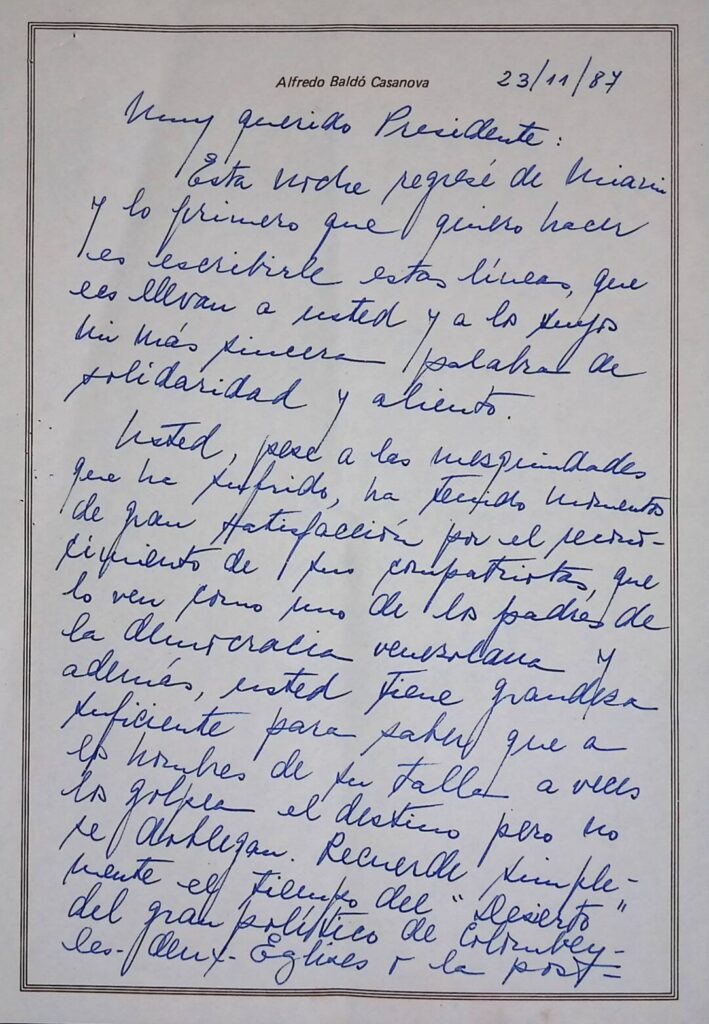 Alfredo Baldó Casanova
23/11/87
Muy querido Presidente:
Esta noche regresé de Miami
y lo primero que quiero hacer
es escribirle estas líneas, que
les llevan a usted y a los suyos
mi más sincera palabra de
solidaridad y aliento.
Usted, pese a las mezquindades
que ha sufrido, ha tenido momentos
de gran satisfacción por el recono-
cimiento de sus compatriotas, que
lo ven como uno de los padres de
la democracia venezolana y
además, usted tiene grandeza
suficiente para saber que a
los hombres de su talla a veces
los golpea el destino pero no
se doblegan. Recuerde simple-
mente el tiempo del "Desierto"
del gran político de Colombey-
les-deux-Eglises o la post-